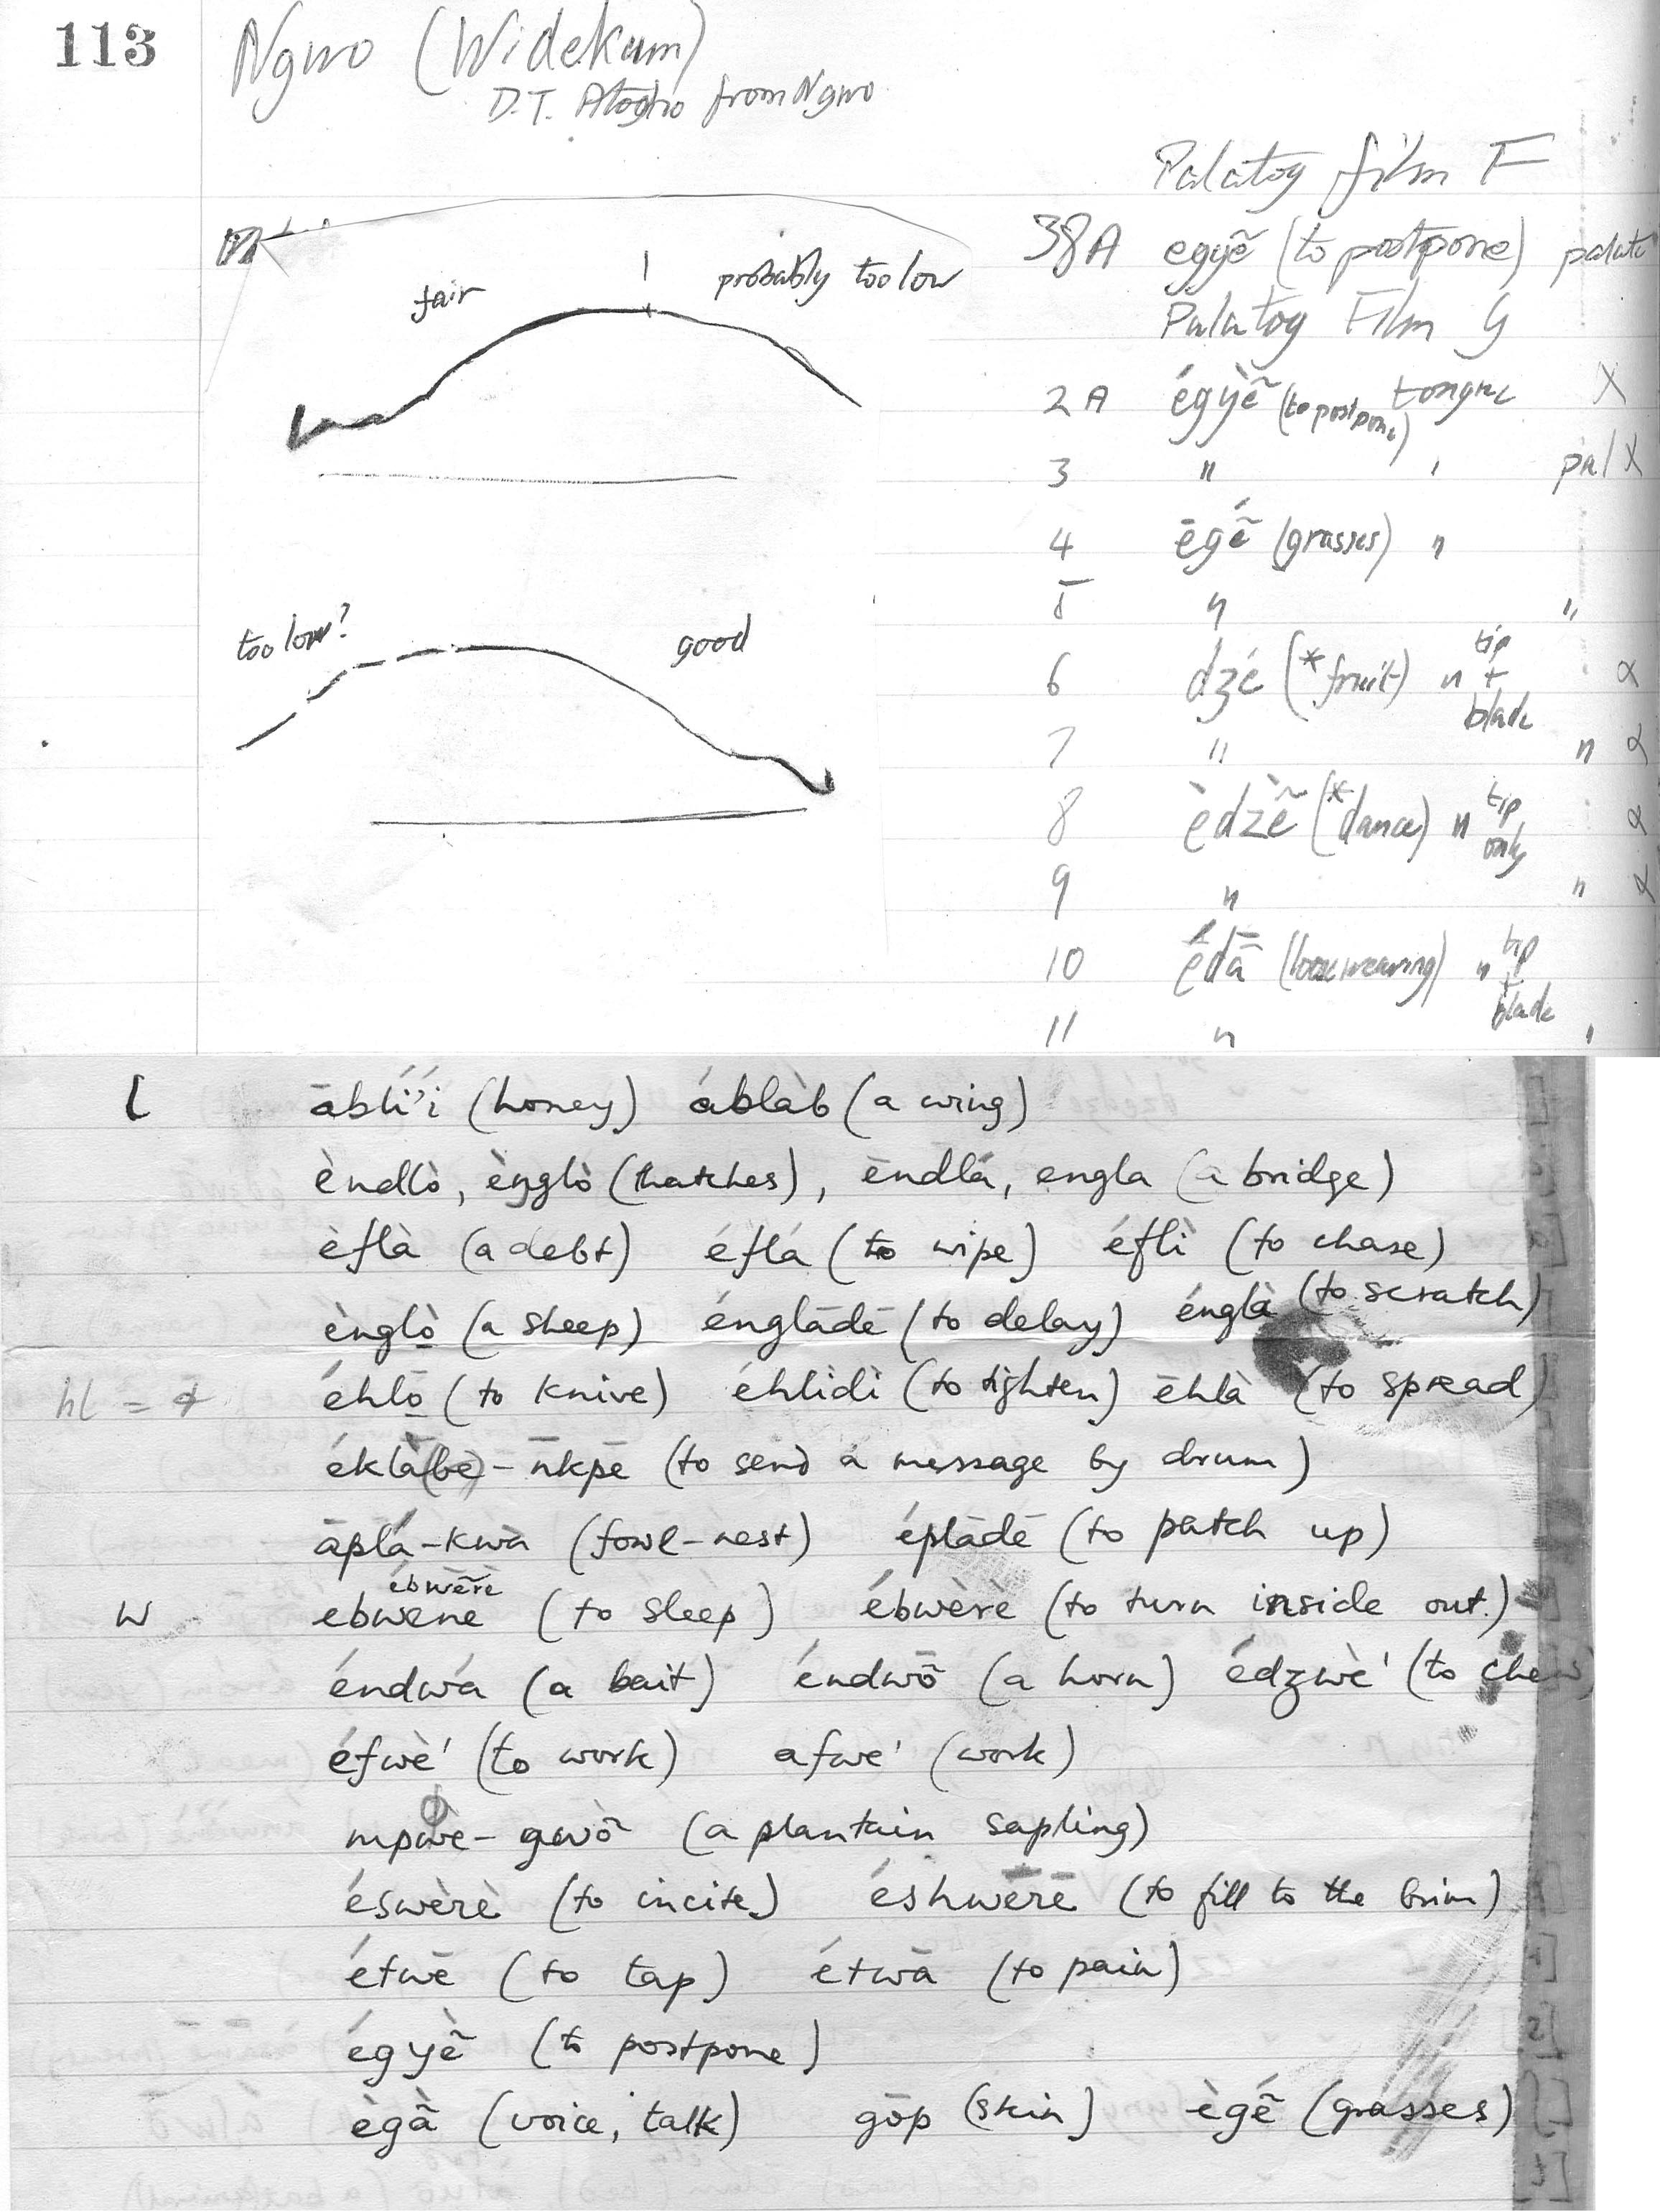 113
Ngwo (Widekum)
D.T. from Ngwo
Palatog film F
fair
probably too low
38A egyẽ (to postpone) palate
Palatog Film G
2A égyẽ̀ (to postpone) tongue X
3 " ' pal X
4 ēgẽ́ (grasses) "
5 " "
too low?
good
6 dzé (*fruit) " tip + blade α
7 " " α
8 èdzẽ̀ (*dance) " tip only α
9 " " α
10 édā (loose weaving) " tip + blade
11 " '
l āblí'í (honey) áblàb (a wing)
èndlò, èŋglò (thatches), ēndlá, engla (a bridge)
èflà (a debt) éflá (to wipe) éflì (to chase)
ènglò̱ (a sheep) énglādē (to delay) énglà (to scratch)
hl = ɬ éhlō̱ (to knive) éhlìdì (to tighten) ēhlà (to spread)
éklà(be) - n̄kpē (to send a message by drum)
āplá-kwà (fowl-nest) éplādē (to patch up)
ébwẽ̀rè
w ebwene (to sleep) ébwèrè (to turn inside out.)
éndwá (a bait) éndwõ (a horn) édzwè' (to chew)
éfwè' (to work) afwe' (work)
mpwe- gwõ̀ (a plantain sapling)
éswèrè (to incite) éshwērē (to fill to the brim)
étwē (to tap) étwā (to pain)
égyẽ̀ (to postpone)
ègã̀ (voice, talk) gōp (skin) ègẽ́ (grasses)